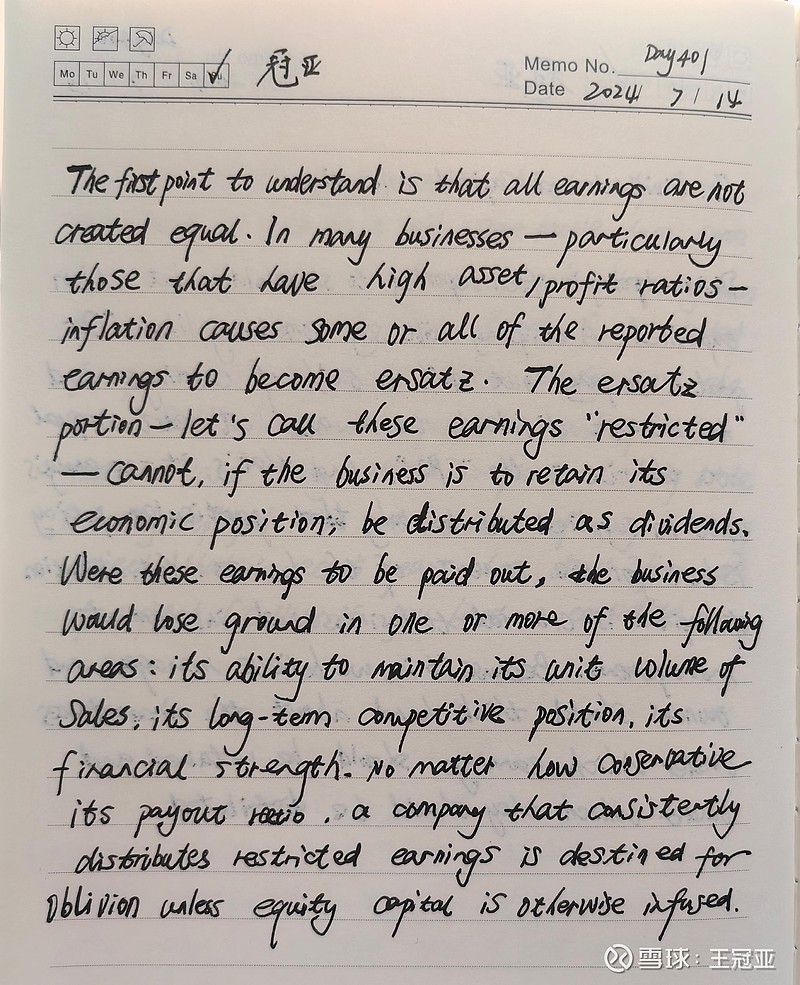 Mo Tu We Th Fr Sa Su 冠亚
Memo No. Day401
Date 2024 7 14
The first point to understand is that all earnings are not
created equal. In many businesses — particularly
those that have high asset/profit ratios —
inflation causes some or all of the reported
earnings to become ersatz. The ersatz
portion — let's call these earnings "restricted"
— cannot, if the business is to retain its
economic position, be distributed as dividends.
Were these earnings to be paid out, the business
would lose ground in one or more of the following
areas: its ability to maintain its unit volume of
Sales, its long-term competitive position, its
financial strength. No matter how conservative
its payout ratio, a company that consistently
distributes restricted earnings is destined for
oblivion unless equity capital is otherwise infused.
雪球:王冠亚